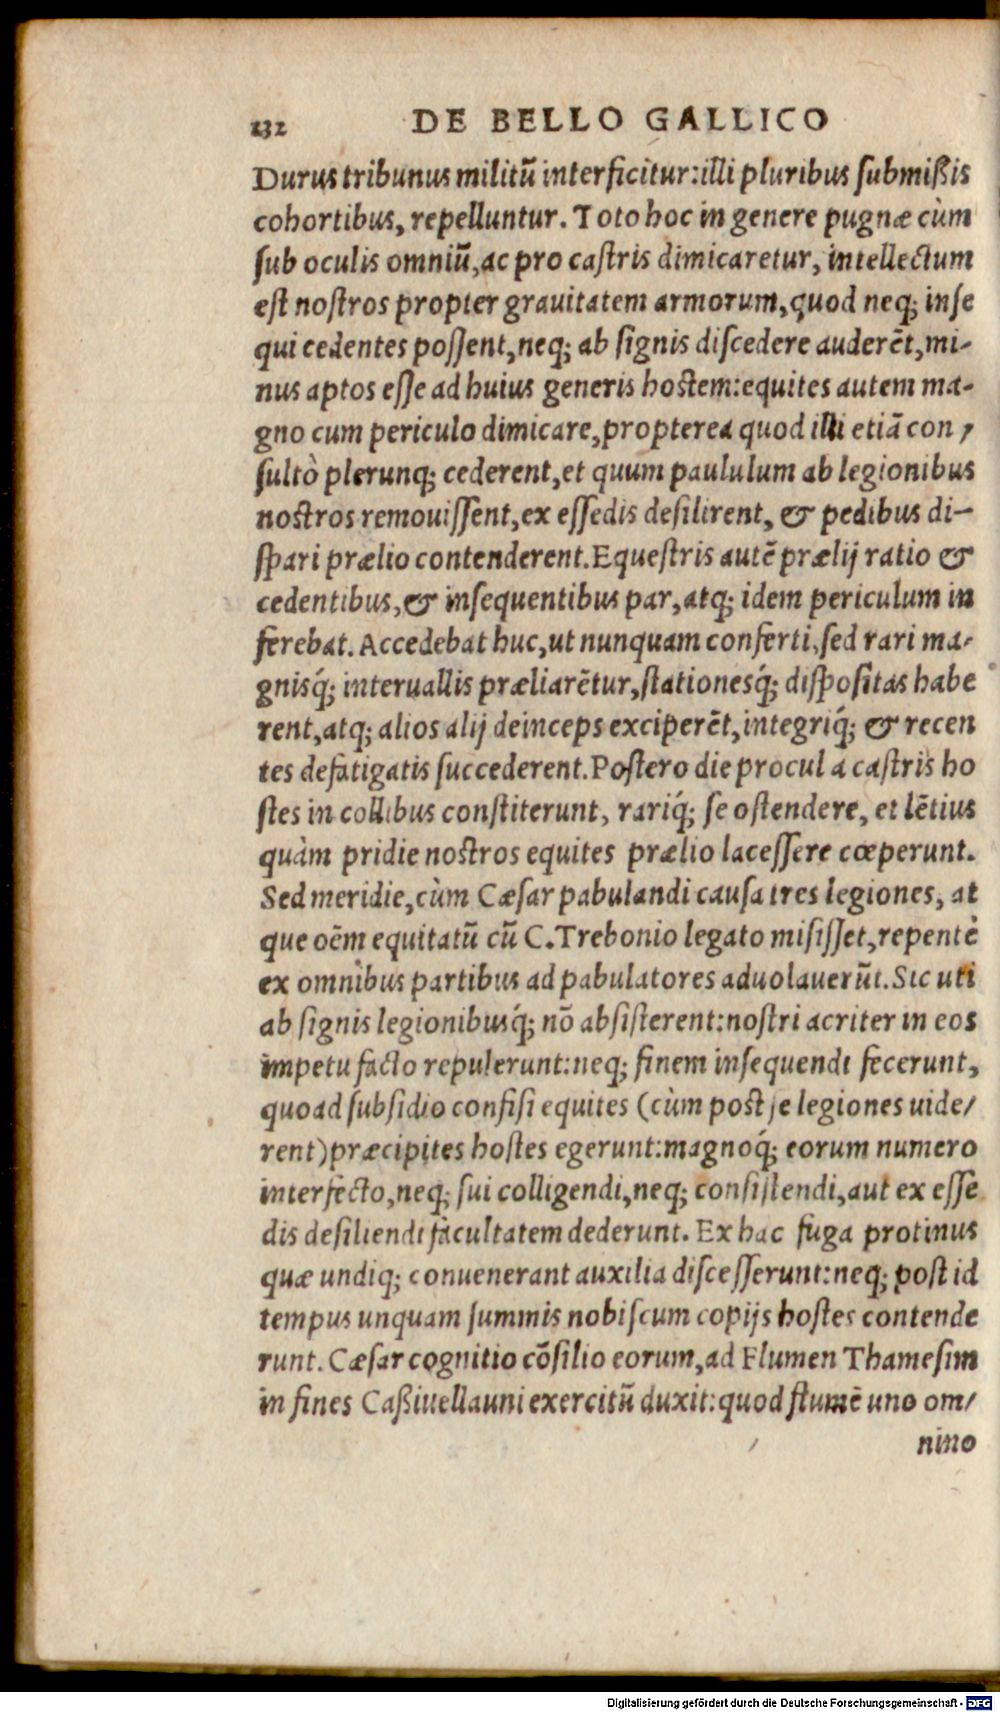 232 DE BELLO GALLICO
Durus tribunus militū interficitur: illi pluribus ſubmißis
cohortibus, repelluntur. Toto hoc in genere pugnæ cùm
ſub oculis omniū, ac pro caſtris dimicaretur, intellectum
eſt noſtros propter grauitatem armorum, quod neq; inſe
qui cedentes poſſent, neq; ab ſignis diſcedere auderēt, mi-
nus aptos eſſe ad huius generis hoſtem: equites autem ma-
gno cum periculo dimicare, propterea quod illi etiā con-
ſultò plerunq; cederent, et quum paululum ab legionibus
noſtros remouiſſent, ex eſſedis deſilirent, & pedibus di-
ſpari prælio contenderent. Equeſtris autē prælij ratio &
cedentibus, & inſequentibus par, atq; idem periculum in
ferebat. Accedebat huc, ut nunquam conferti, ſed rari ma-
gnisq́; interuallis præliarētur, ſtationesq́; diſpoſitas habe
rent, atq; alios alij deinceps exciperēt, integriq́; & recen
tes defatigatis ſuccederent. Poſtero die procul a caſtris ho
ſtes in collibus conſtiterunt, rariq́; ſe oſtendere, et lētius
quàm pridie noſtros equites prælio laceſſere cœperunt.
Sed meridie, cùm Cæſar pabulandi cauſa tres legiones, at
que oēm equitatū cū C. Trebonio legato miſiſſet, repentè
ex omnibus partibus ad pabulatores aduolauerūt. Sic uti
ab ſignis legionibusq́; nō abſiſterent: noſtri acriter in eos
impetu facto repulerunt: neq; finem inſequendi fecerunt,
quoad ſubſidio confiſi equites (cùm poſt ſe legiones uide-
rent) præcipites hoſtes egerunt: magnoq́; eorum numero
interfecto, neq; ſui colligendi, neq; conſiſtendi, aut ex eſſe
dis deſiliendi facultatem dederunt. Ex hac fuga protinus
quæ undiq; conuenerant auxilia diſceſſerunt: neq; poſt id
tempus unquam ſummis nobiſcum copijs hoſtes contende
runt. Cæſar cognitio cōſilio eorum, ad Flumen Thameſim
in fines Caßiuellauni exercitū duxit: quod flumē uno om-
nino
Digitalisierung gefördert durch die Deutsche Forschungsgemeinschaft - DFG